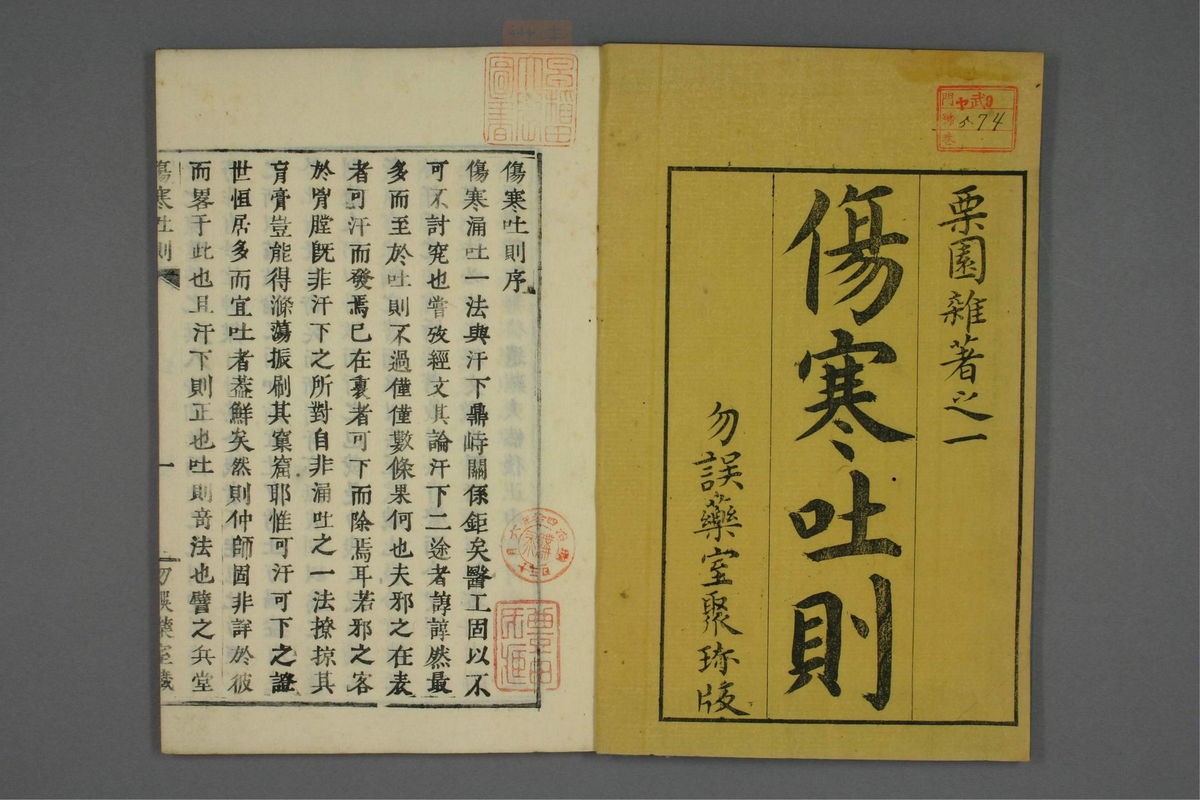 栗園雜著之一
傷寒吐則
勿誤藥室聚珍版
武
門
574
傷寒吐則序
傷寒涌吐一法與汗下鼎峙關係鉅矣醫工固以不
可不討究也嘗攷經文其論汗下二途者諄諄然最
多而至於吐則不過僅僅數條果何也夫邪之在表
者可汗而發焉已在裏者可下而除焉耳若邪之客
於胷膛既非汗下之所對自非涌吐之一法撩掠其
肓膏豈能得滌蕩振刷其窠窟耶惟可汗可下之證
世恒居多而宜吐者葢鮮矣然則仲師固非詳於彼
而畧于此也且汗下則正也吐則奇法也譬之兵堂
傷寒吐則
一
勿誤藥室藏